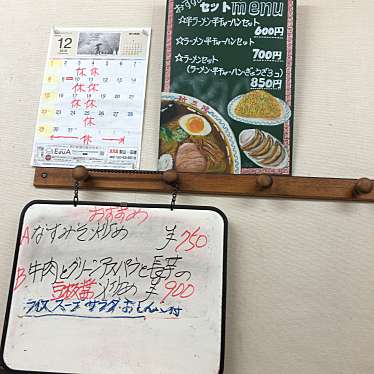 12
休休
休
休
休
休
休
EIWA
おすすめ
セットmenu
☆半ラーメン・半チャーハンセット
600円
☆ラーメン・半チャーハンセット
700円
☆ラーメンセット
(ラーメン・半チャーハン・ぎょうざ3コ)
850円
おすすめ
Aなすみそ炒め ¥750
B牛肉とグリーンアスパラと長芋の
豆板醤炒め ¥900
ライス、スープ、サラダ、おしんこ付